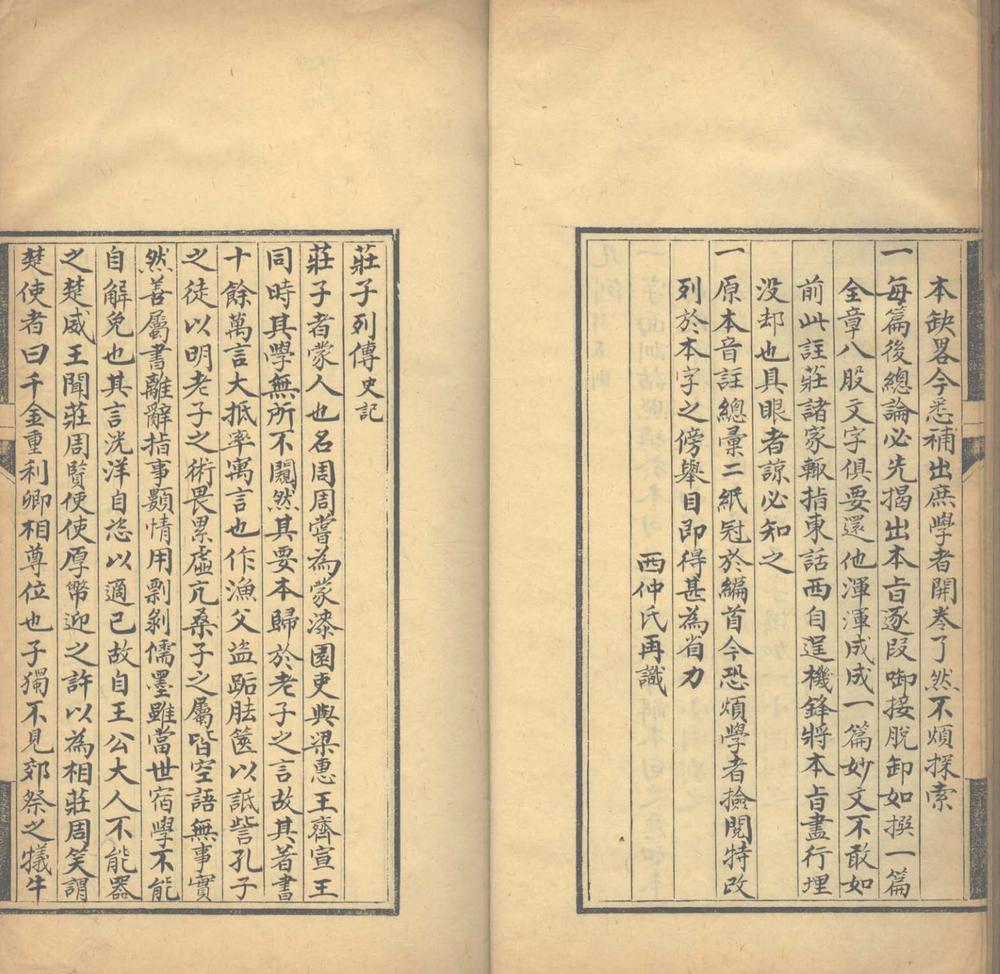 本缺畧今悉補出庶學者開卷了然不煩探索
一每篇後總論必先揭出本旨逐段啣接脫卸如撰一篇
全章八股文字俱要還他渾渾成成一篇妙文不敢如
前此註莊諸家輙指東話西自逞機鋒將本旨盡行埋
没却也具眼者諒必知之
一原本音註總彙二紙冠於編首今恐煩學者撿閱特改
列於本字之傍舉目即得甚為省力
西仲氏再識
莊子列傳史記
莊子者蒙人也名周周嘗為蒙漆園吏與梁惠王齊宣王
同時其學無所不闚然其要本歸於老子之言故其著書
十餘萬言大抵率寓言也作漁父盜跖胠篋以詆訾孔子
之徒以明老子之術畏累虛亢桑子之屬皆空語無事實
然善屬書離辭指事類情用剽剝儒墨雖當世宿學不能
自解免也其言洸洋自恣以適己故自王公大人不能器
之楚威王聞莊周賢使使厚幣迎之許以為相莊周笑謂
楚使者曰千金重利卿相尊位也子獨不見郊祭之犧牛